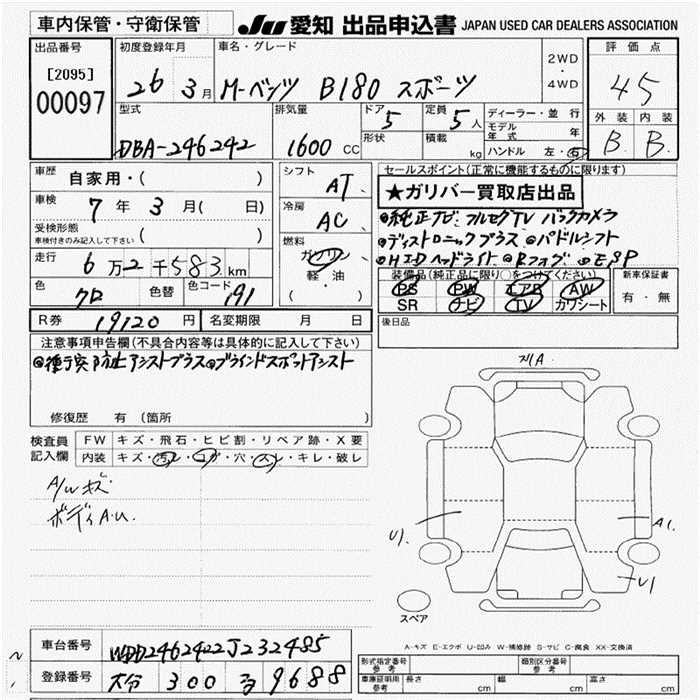 車内保管・守衛保管 JU 愛知 出品申込書 JAPAN USED CAR DEALERS ASSOCIATION
出品番号 初度登録年月 車名・グレード 評価点
[2095] 26 3月 M-ベンツ B180 スポーツ 2WD・4WD 45
00097
型式 排気量 ドア 5 定員 5人 ディーラー・並行 外装 内装
モデル年式 年
DBA-246242 1600 CC 形状 積載 kg ハンドル 左・右 B. B.
車歴 自家用・( ) シフト AT セールスポイント(正常に機能するものに限ります)
★ガリバー買取店出品
車検 7年 3月( 日) 冷房 AC
◎純正ナビ・フルセグTV バックカメラ
受検形態 ( )
車検付きのみ記入して下さい
◎ディストロニックプラス ◎パドルシフト
走行 6万2千583km 燃料 ガソリン・軽・油・( )
◎HIDヘッドライト ◎Rフォグ ◎ESP
装備品(純正品に限り○をつけてください) 新車保証書
色 クロ 色替 色コード 191
PS PW エアB AW 有・無
SR ナビ TV カワシート
R券 19120円 名変期限 月 日
後日品
注意事項申告欄(不具合内容等は具体的に記入して下さい)
アシストプラス◎ブラインドスポットアシスト
修復歴 有(箇所 )
検査員記入欄 FW キズ・飛石・ヒビ割・リペア跡・X要
内装 キズ・汚レ・コゲ・穴・スレ・キレ・破レ
A/Wキズ
ボディA.U.
U1
A1
U1
スペア
A-キズ E-エクボ U-凹み W-補修跡 S-サビ C-腐食 XX-交換済
車台番号 WDD2462422J232485
形式指定番号 参考 類別区分番号 参考
登録番号 大分 300 る 9688
車庫証明用 参考 長さ cm 幅 cm 高さ cm